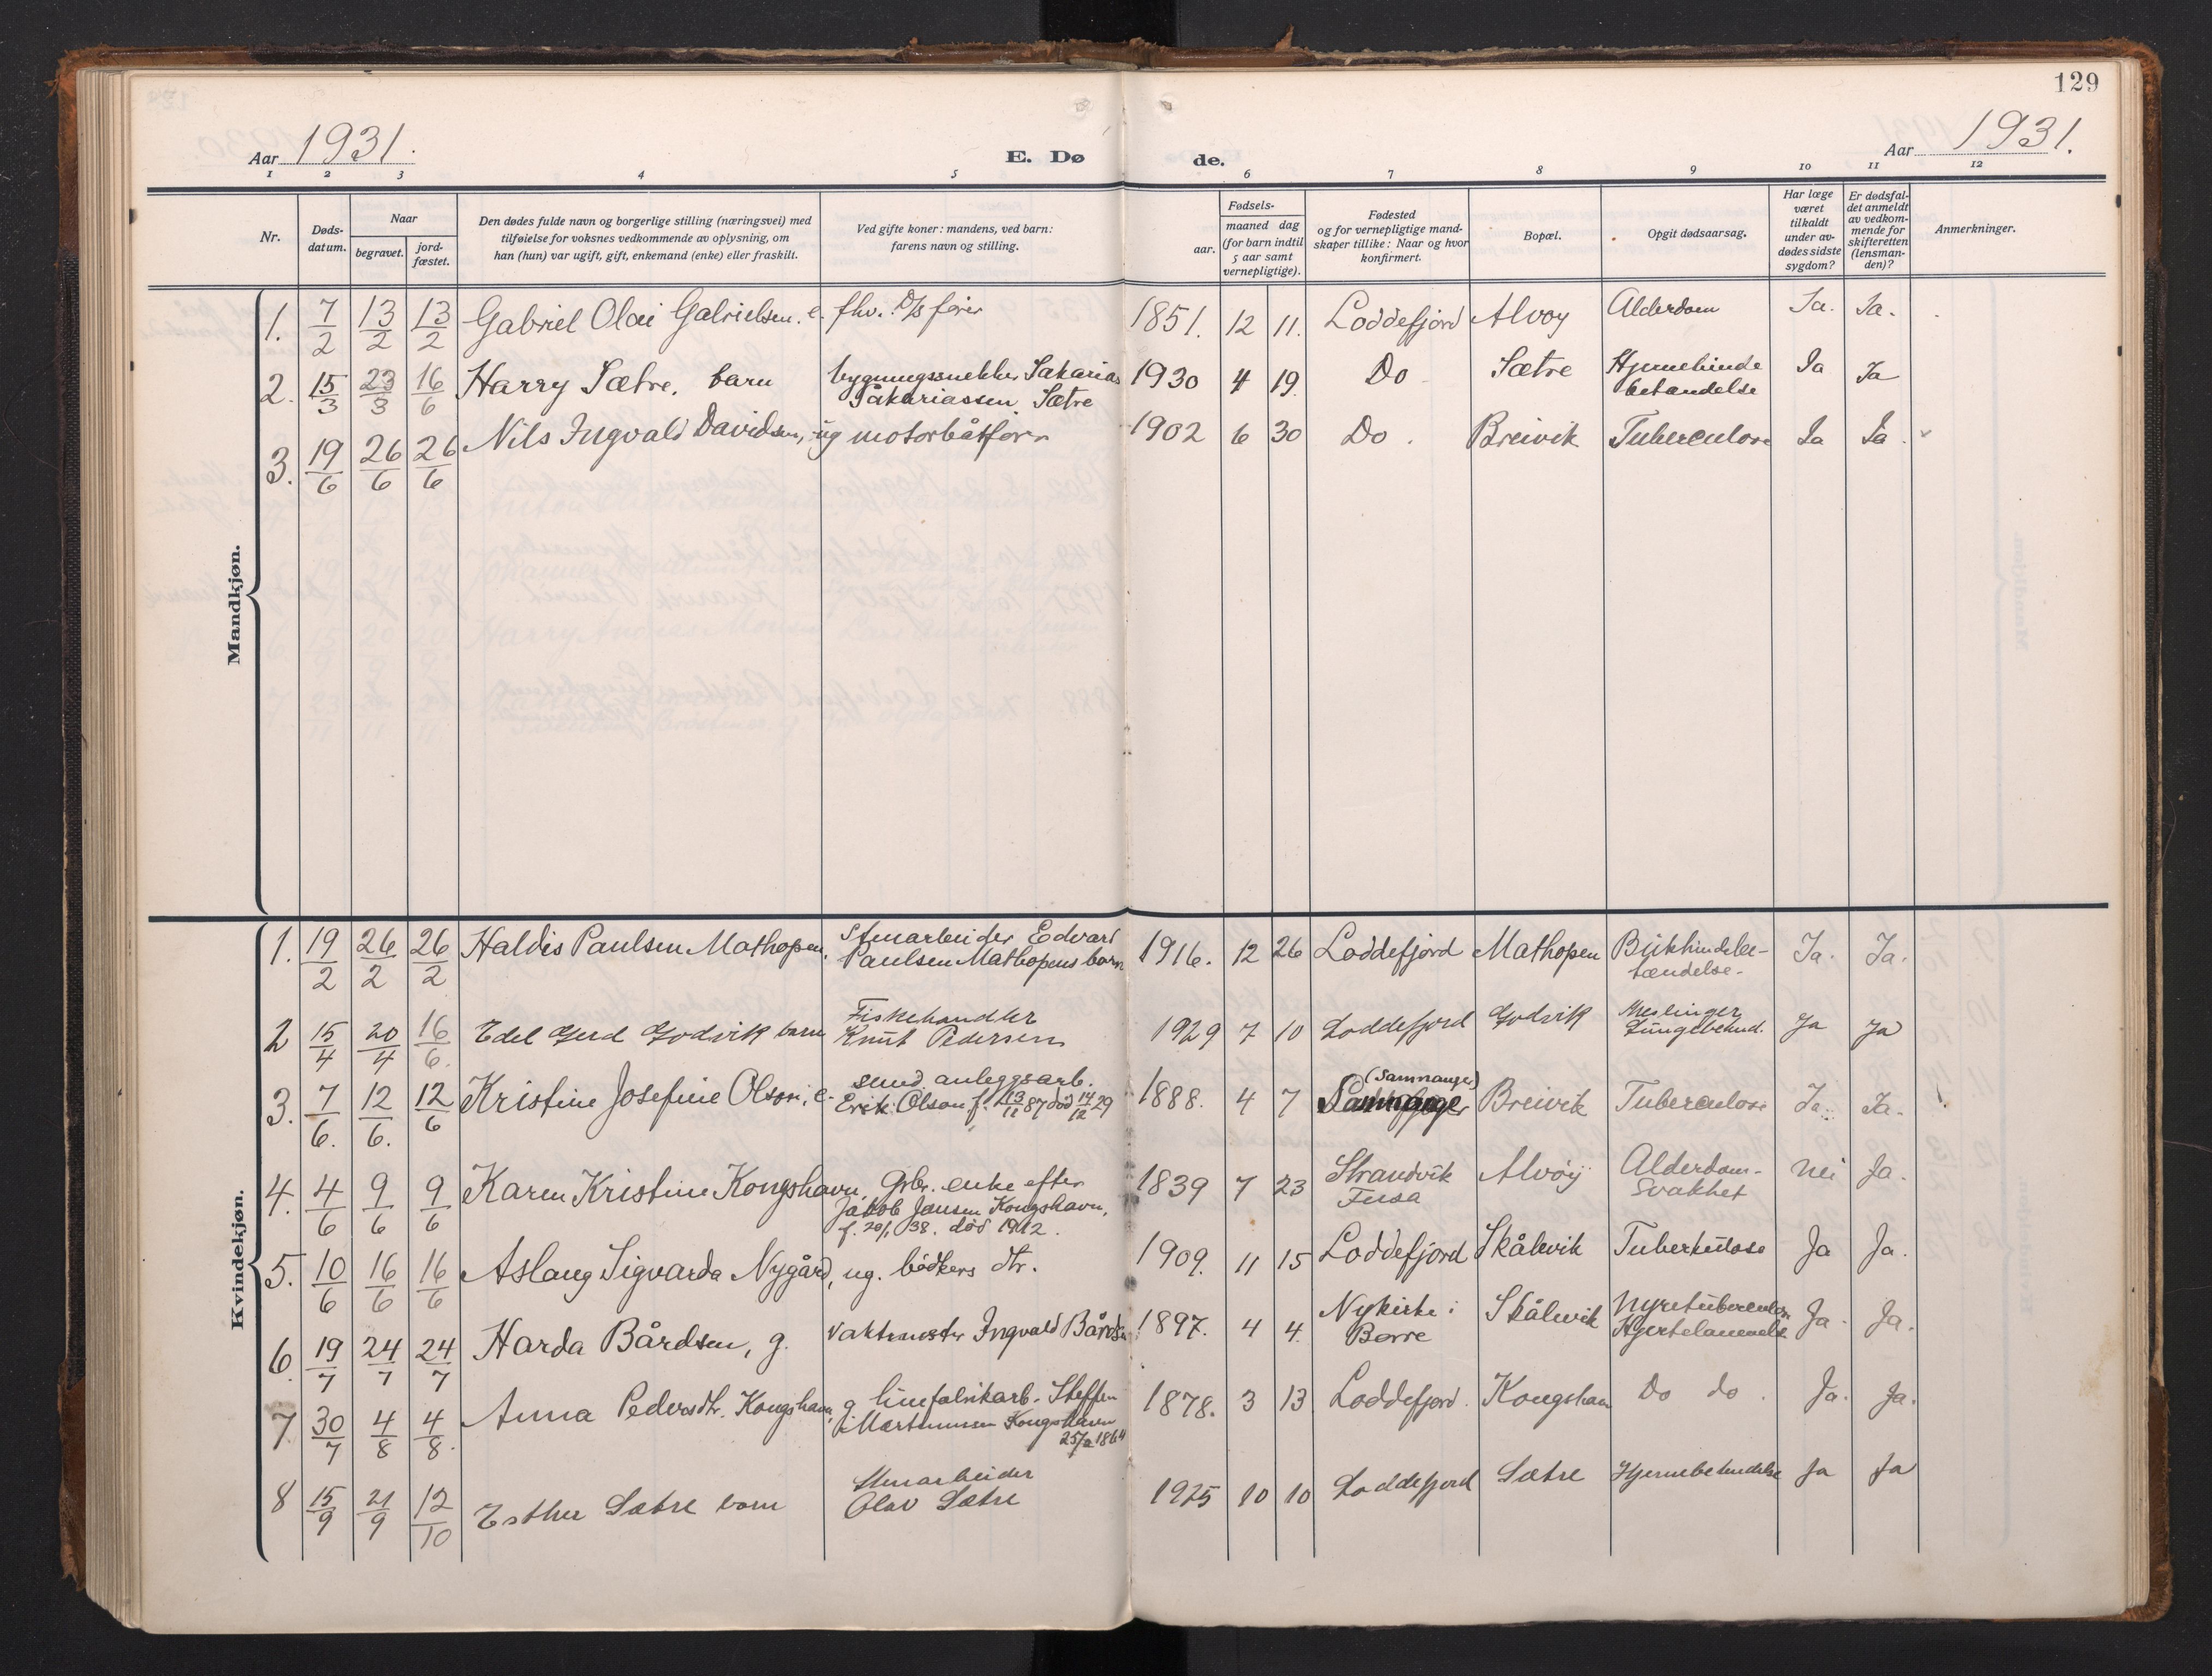 129
Aar 1931.
E. Dø de.
Aar 1931.
1 2 3 4 5 6 7 8 9 10 11 12
Nr.
Døds-
datum.
Naar
begravet.
jord-
fæstet.
Den dødes fulde navn og borgerlige stilling (næringsvei) med
tilføielse for voksnes vedkommende av oplysning, om
han (hun) var ugift, gift, enkemand (enke) eller fraskilt.
Ved gifte koner: mandens, ved barn:
farens navn og stilling.
Fødsels-
aar.
maaned dag
(for barn indtil
5 aar samt
vernepligtige).
Fødested
og for vernepligtige mand-
skaper tillike: Naar og hvor
konfirmert.
Bopæl.
Opgit dødsaarsag.
Har læge
været
tilkaldt
under av-
dødes sidste
sygdom?
Er dødsfal-
det anmeldt
av vedkom-
mende for
skifteretten
(lensman-
den)?
Anmerkninger.
Mandkjøn.
1. 7/2 13/2 13/2 Gabriel Olai Gabrielsen. e. fhv. D/s fører 1851. 12 11. Loddefjord Alvøy Alderdom Ja. Ja.
2. 15/3 23/3 16/6 Harry Sætre, barn bygningssnekker Sakarias 1930 4 19. Do Sætre Hjernehinde Ja Ja
Sakariassen Sætre betændelse
3. 19/6 26/6 26/6 Nils Ingvald Davidsen, ug motorbåtfører 1902 6 30 Do. Breivik Tuberculose Ja Ja.
Kvindekjøn.
1. 19/2 26/2 26/2 Haldis Paulsen Mathopen, Stenarbeider Edvart 1916. 12 26 Loddefjord Mathopen Bukhindebe- Ja. Ja.
Paulsen Mathopens barn tændelse.
2 15/4 20/4 16/6. Edel Gerd Godvik barn Fiskehandler 1929 7 10 Loddefjord Godvik Meslinger Ja Ja
Knut Pedersen Lungebetend.
3. 7/6. 12/6. 12/6 Kristine Josefine Olson, e. smed. anleggsarb. 1888. 4 7 (Samnanger) Breivik Tuberculose Ja. Ja.
Erik Olson f. 13/11 87 död 14/12 29
4. 4/6 9/6 9/6 Karen Kristine Kongshavn, Gbr. enke efter 1839 7 23 Strandvik Alvøy Alderdom- nei Ja.
Jakob Jansen Kongshavn, Fusa Svakhet
f. 20/1 38. död 1912.
5. 10/6 16/6 16/6 Aslaug Sigvarda Nygård, ug. bødkers dtr. 1909. 11 15 Loddefjord Skålevik Tuberkulose Ja Ja.
6. 19/7 24/7 24/7 Harda Bårdsen, g. vaktmester Ingvald Bårdsen 1897. 4 4. Nykirke i Skålevik Nyretuberculose Ja. Ja.
Borre Hjertelammelse
7 30/7 4/8 4/8. Anna Pedersdtr. Kongshavn, g linefabrikarb. Steffen 1878. 3 13 Loddefjord. Kongshavn Do do. Ja. Ja.
Martinussen Kongshavn
8 15/9 21/9 12/10 Esther Sætre barn Stenarbeider 1925 10 10 Loddefjord Sætre Hjernebetendelse Ja Ja
Olav Sætre